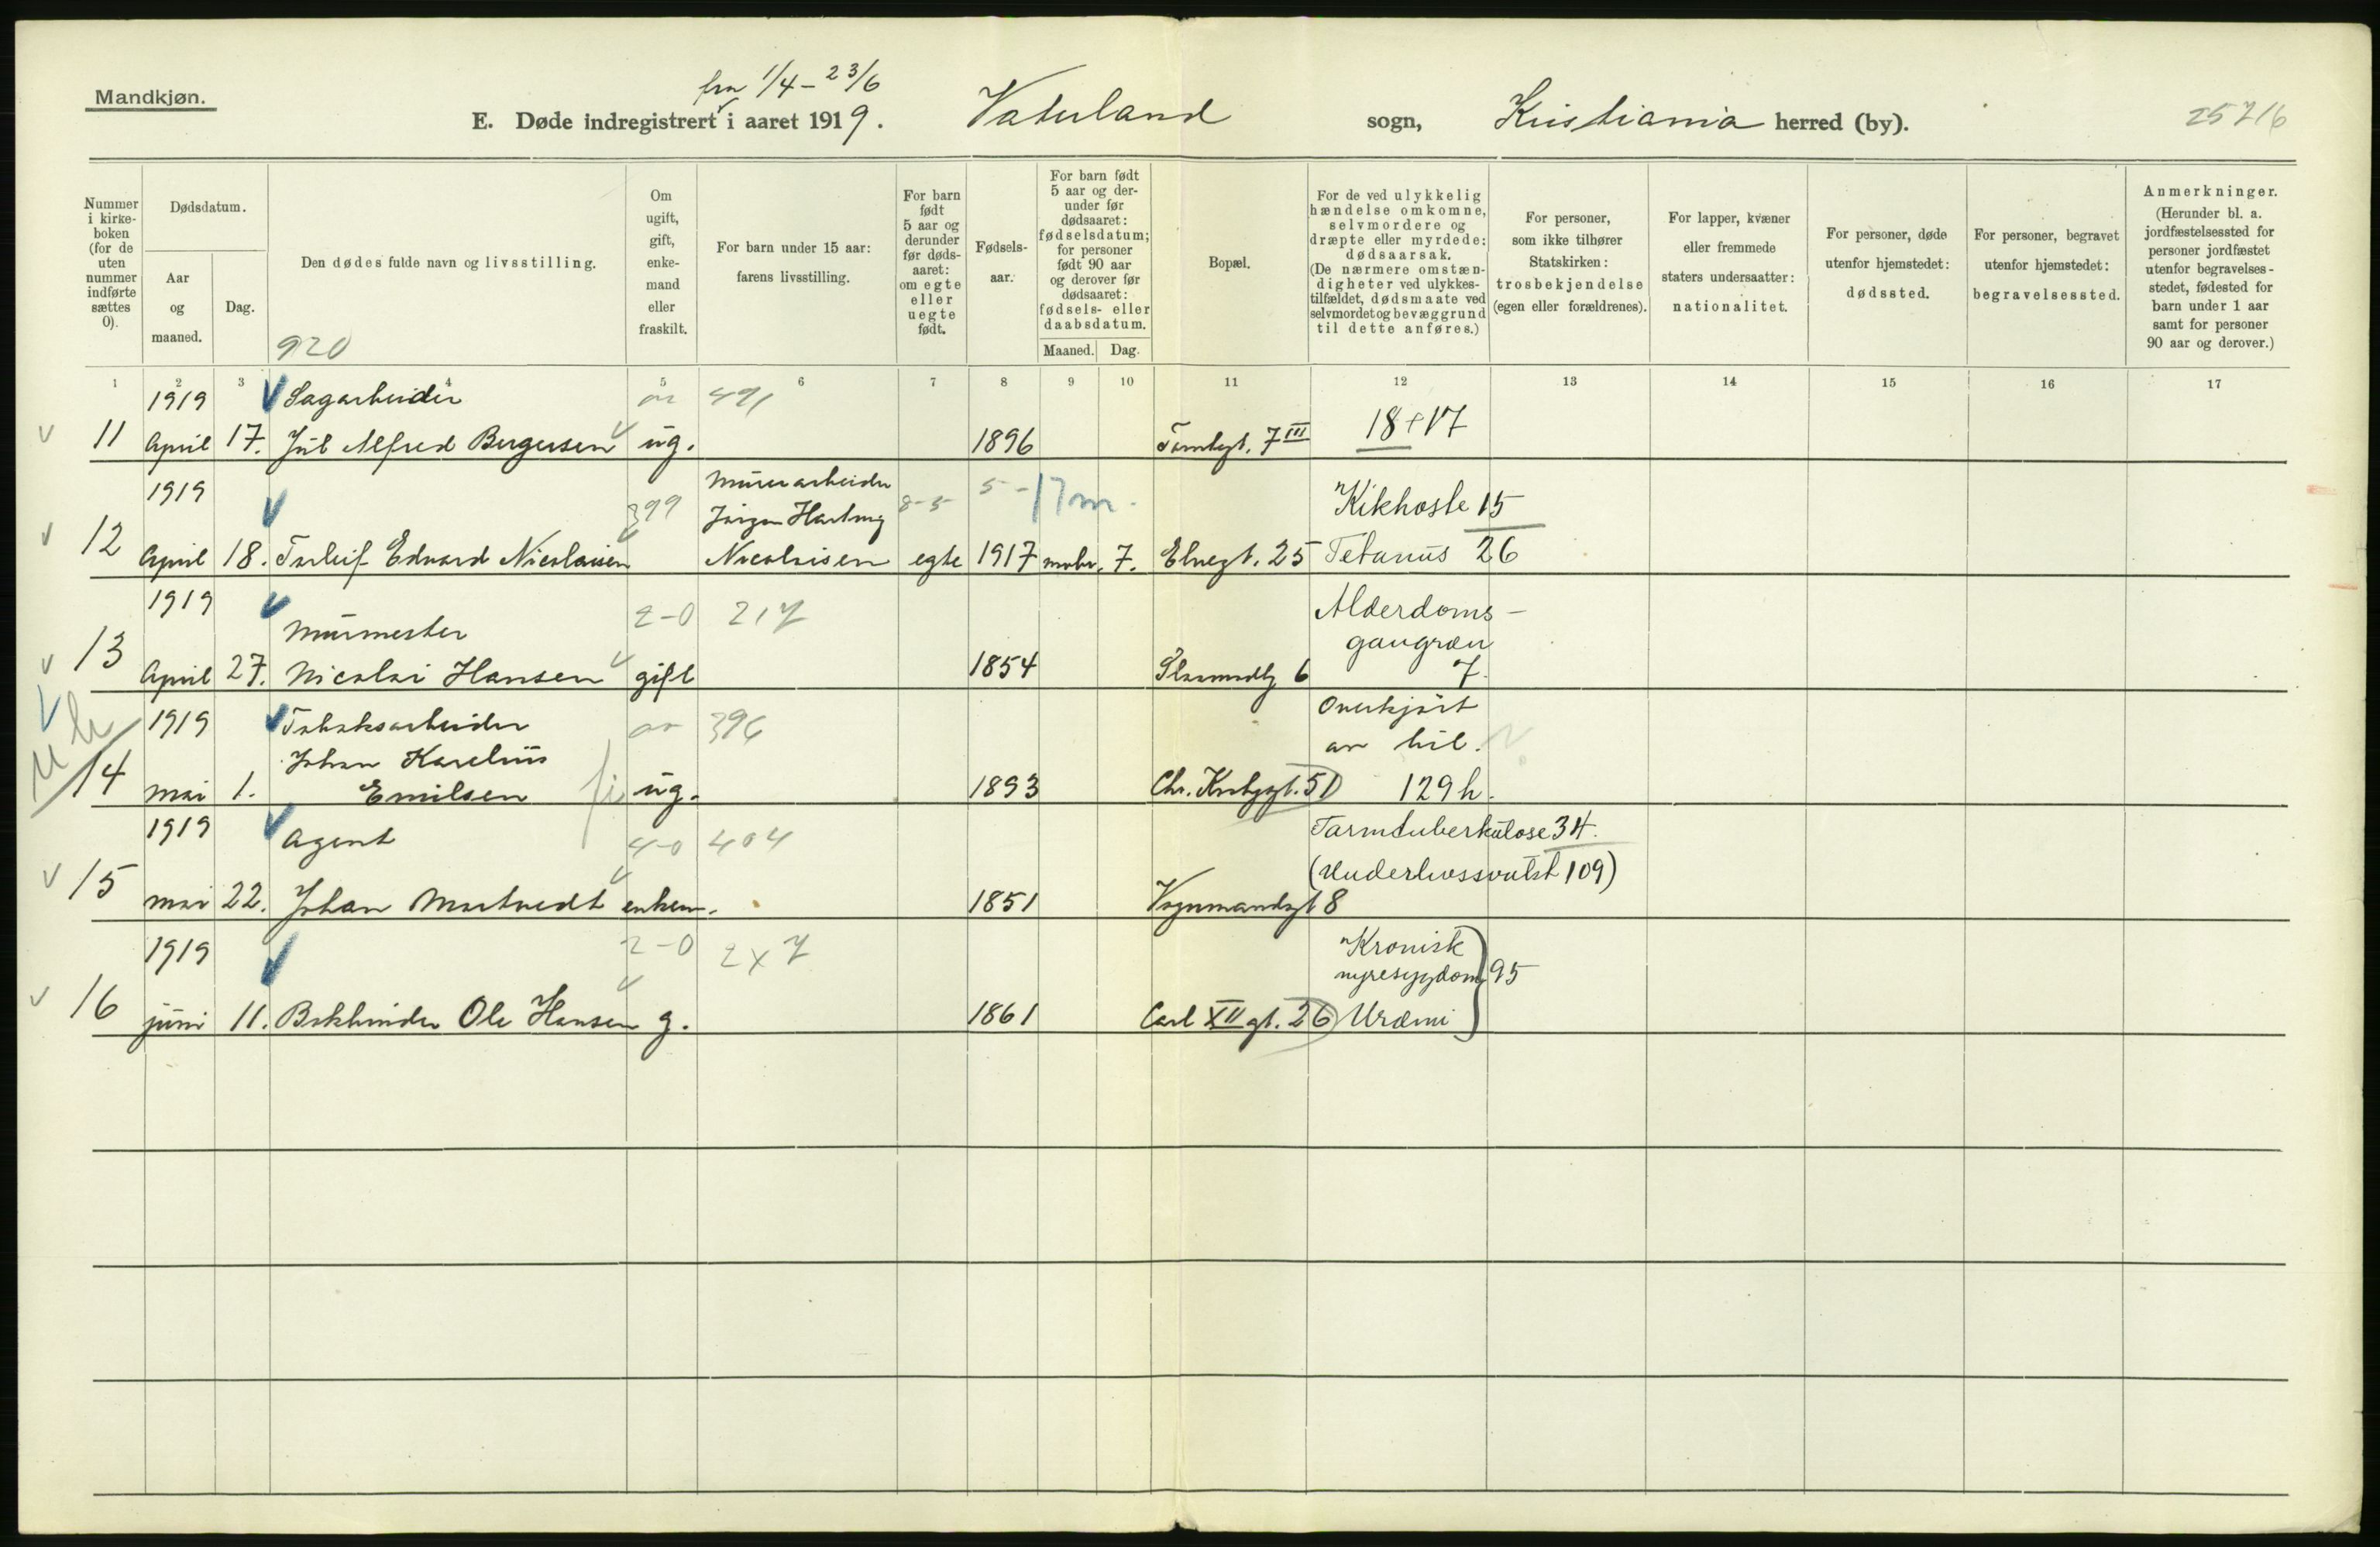 Mandkjøn.
fra 1/4 - 23/6
E. Døde indregistrert i aaret 1919. Vaterland sogn, Kristiania herred (by).
25716
Nummer i kirke-boken (for de uten nummer indførte sættes 0).
Dødsdatum.
Aar og maaned.
Dag.
Den dødes fulde navn og livsstilling.
920
Om ugift, gift, enke-mand eller fraskilt.
For barn under 15 aar: farens livsstilling.
For barn født 5 aar og derunder før døds-aaret: om egte eller uegte født.
Fødsels-aar.
For barn født 5 aar og der-under før dødsaaret: fødselsdatum; for personer født 90 aar og derover før dødsaaret: fødsels- eller daabsdatum.
Maaned. Dag.
Bopæl.
For de ved ulykkelig hændelse omkomne, selvmordere og dræpte eller myrdede: dødsaarsak. (De nærmere omstæn-digheter ved ulykkes-tilfældet, dødsmaate ved selvmordet og bevæggrund til dette anføres.)
For personer, som ikke tilhører Statskirken: trosbekjendelse (egen eller forældrenes).
For lapper, kvæner eller fremmede staters undersaatter: nationalitet.
For personer, døde utenfor hjemstedet: dødssted.
For personer, begravet utenfor hjemstedet: begravelsessted.
Anmerkninger. (Herunder bl. a. jordfæstelsessted for personer jordfæstet utenfor begravelses-stedet, fødested for barn under 1 aar samt for personer 90 aar og derover.)
1 2 3 4 5 6 7 8 9 10 11 12 13 14 15 16 17
1919 Sagarbeider 491
11 April 17. Jul Alfred Bergersen ug. 1896 Tomtegt. 7 III 18+17
1919 399 Murerarbeider 8-5 5 - 17 m. "Kikhoste 15
Jørgen Hartvig
12 April 18. Torleif Edvard Nicolaisen Nicolaisen egte 1917 novbr. 7. Elvegt. 25 Tetanus 26
1919 Murmester 2-0 217 Alderdoms-
gangræn
13 April 27. Nicolai Hansen gift 1854 6 7.
1919 Tobaksarbeider 396 Overkjørt
Johan Karelius av bil.
14 mai 1. Emilsen ug. 1893 Chr. Krohgsgt. 51 129 h.
1919 Agent 4-0 404 Tarmtuberkulose 34.
(Underlivssvulst 109)
15 mai 22. Johan Mortvedt enkem. 1851 Vognmandsgt 8
1919 2-0 2x7 "Kronisk
nyresygdom 95
16 juni 11. Bokbinder Ole Hansen g. 1861 Carl XII gt. 26 Uræmi